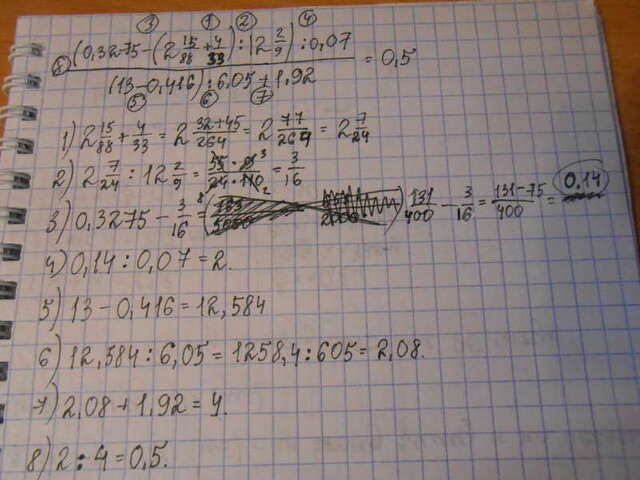 ③ ① ② ④
⑧ (0,3275-(2 15/88 + 4/33) : 12 2/9) : 0,07 / (13-0,416) : 6,05 + 1,92 = 0,5
⑤ ⑥ ⑦
1) 2 15/88 + 4/33 = 2 (32+45)/264 = 2 77/264 = 2 7/24
2) 2 7/24 : 12 2/9 = (55 · 9 3)/(24 · 110) 8 2 = 3/16
3) 0,3275 - 3/16 = 131/400 - 3/16 = (131-75)/400 = 0.14
4) 0,14 : 0,07 = 2.
5) 13 - 0,416 = 12,584
6) 12,584 : 6,05 = 1258,4 : 605 = 2,08.
7) 2,08 + 1,92 = 4.
8) 2 : 4 = 0,5.